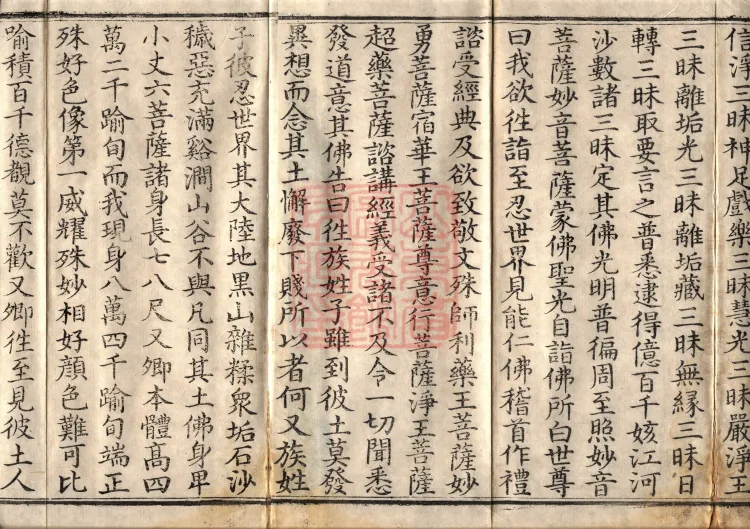 信淨三昧神足戲樂三昧慧光三昧嚴淨王
三昧離垢光三昧離垢藏三昧無縁三昧日
轉三昧取要言之普悉逮得億百千姟江河
沙數諸三昧定其佛光明普徧周至照妙音
菩薩妙音菩薩蒙佛聖光自詣佛所白世尊
曰我欲往詣至忍世界見能仁佛稽首作禮
諮受經典及欲致敬文殊師利藥王菩薩妙
勇菩薩宿華王菩薩尊意行菩薩淨王菩薩
超藥菩薩諮講經義受諸不及令一切聞悉
發道意其佛告曰往族姓子雖到彼土莫發
異想而念其土懈廢下賤所以者何又族姓
子彼忍世界其大陸地黑山雜糅衆垢石沙
穢惡充滿谿澗山谷不與凡同其土佛身卑
小丈六菩薩諸身長七八尺又卿本體髙四
萬二千踰旬而我現身八萬四千踰旬端正
殊好色像第一威耀殊妙相好顔色難可比
喻積百千德觀莫不歡又卿往至見彼土人